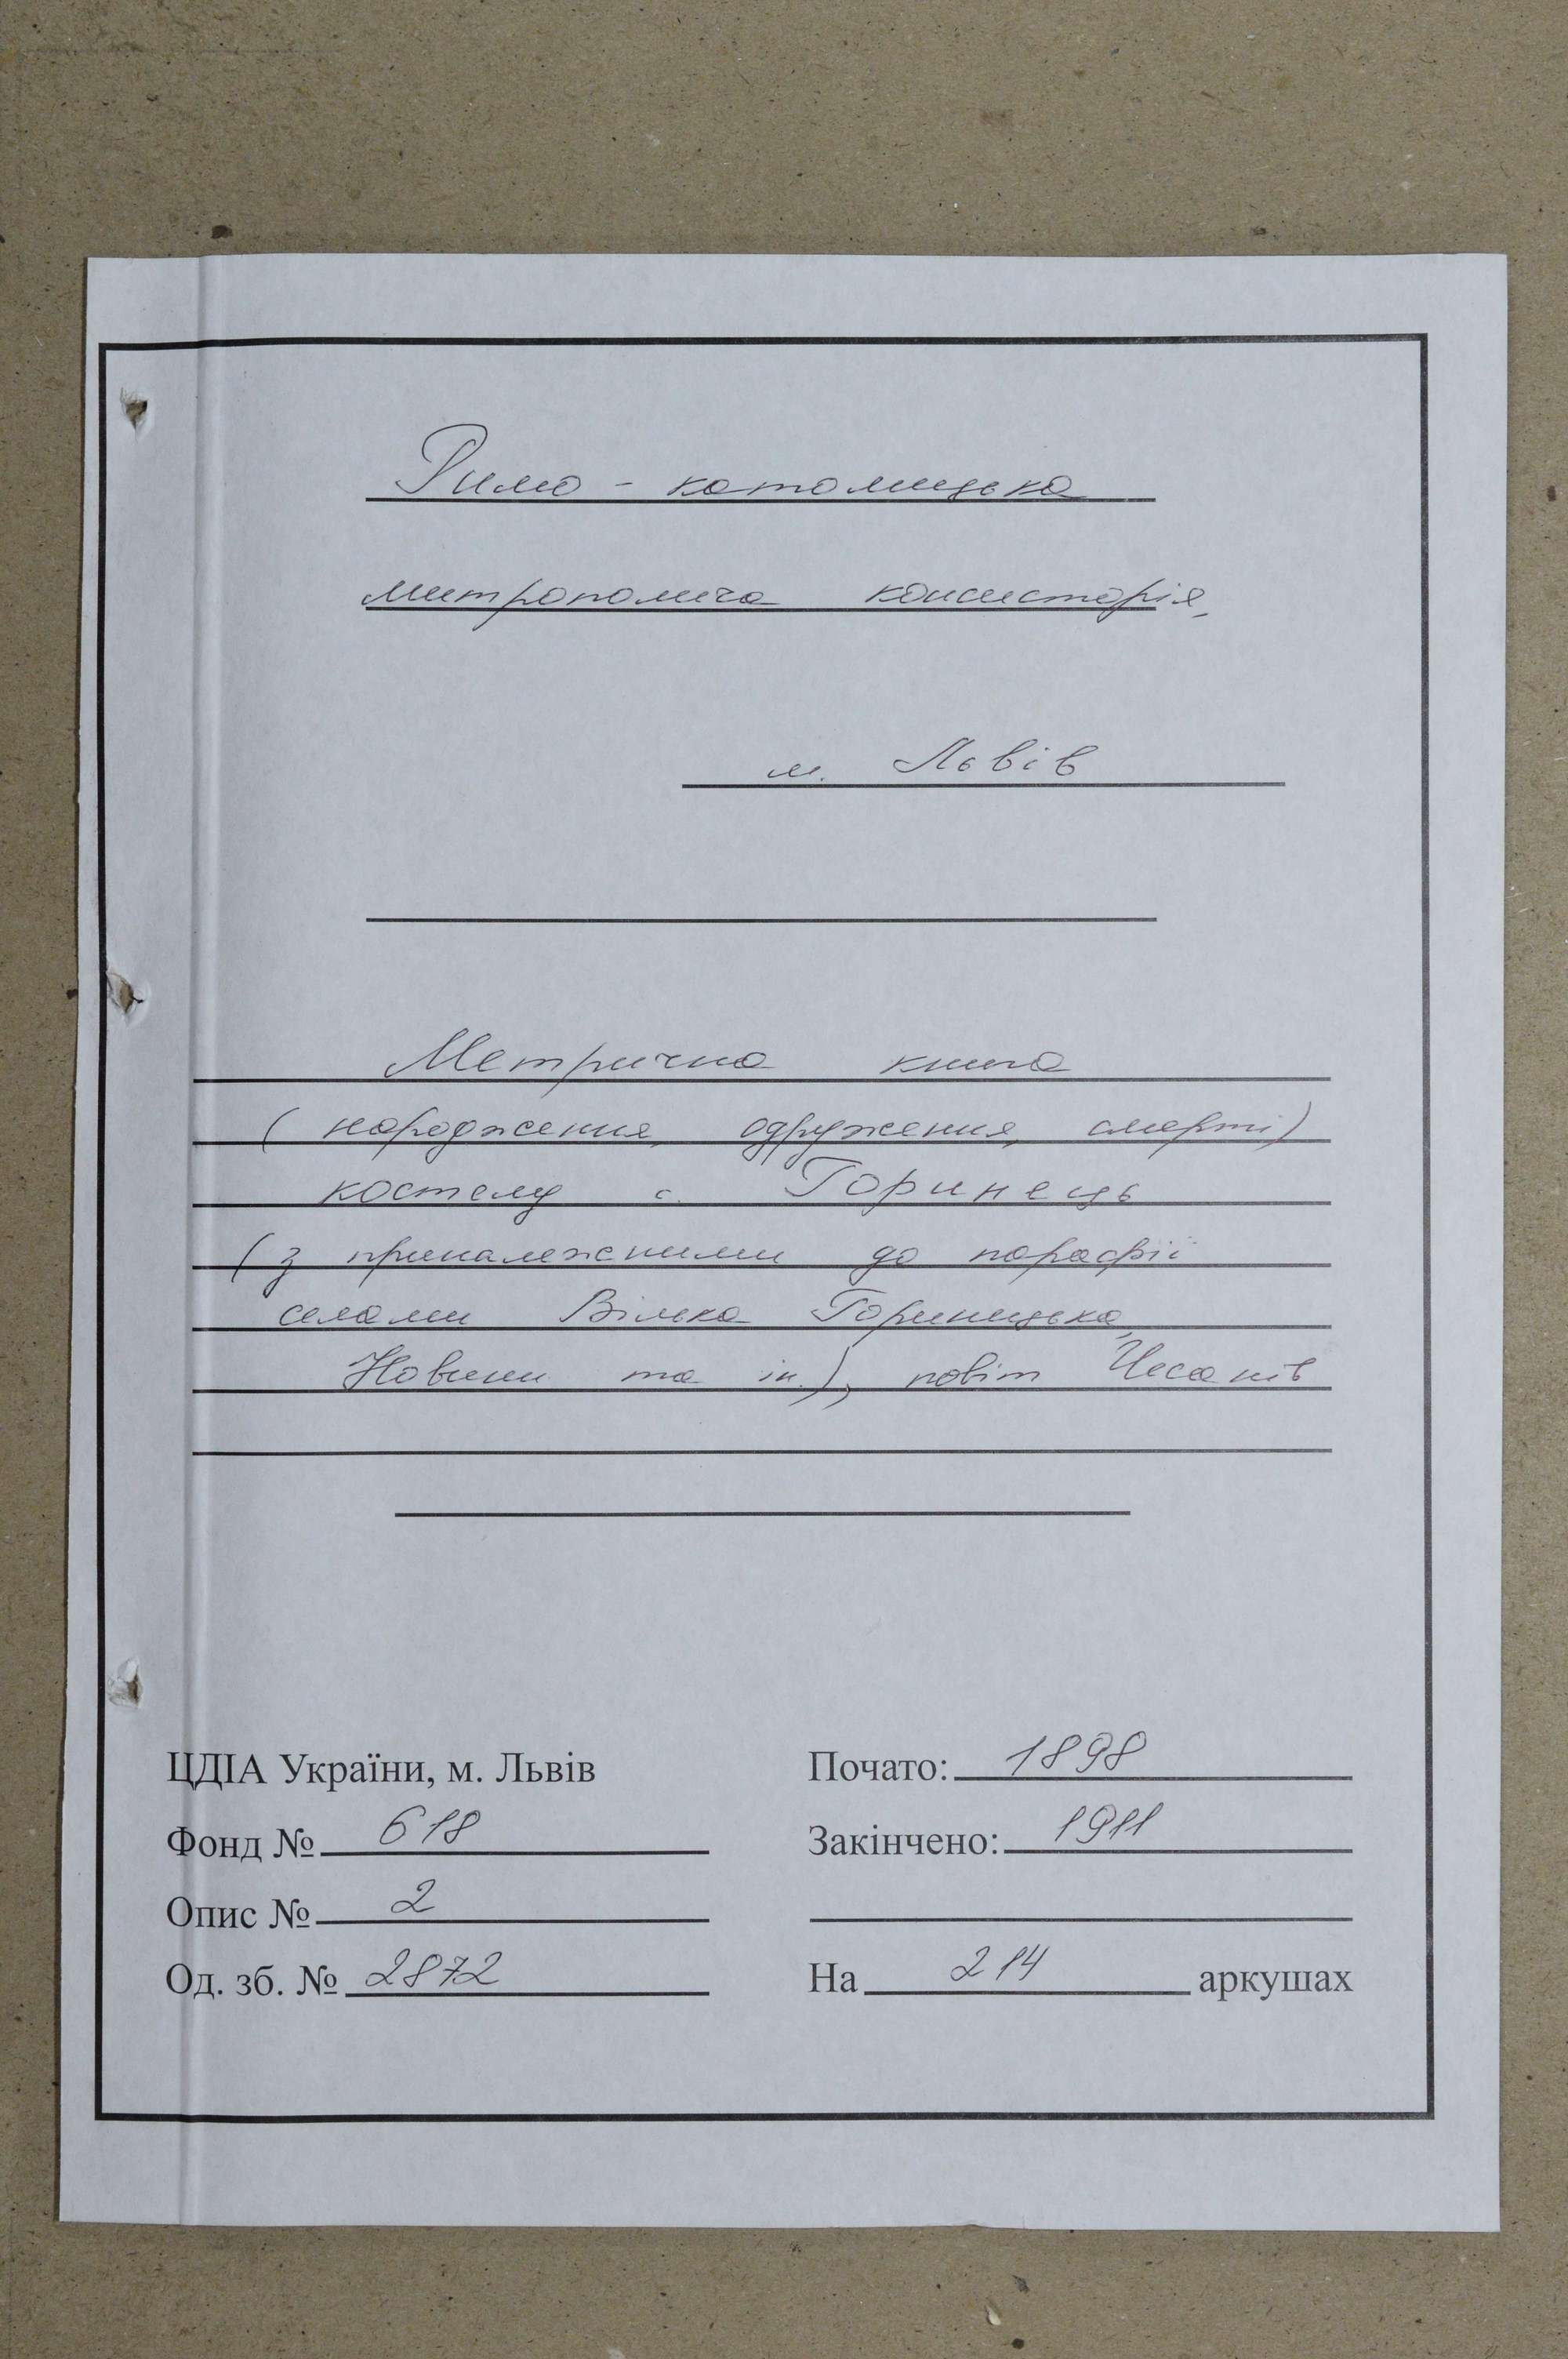 Римо - католицька
митрополича консисторія,
м. Львів
Метрична книга
( народження, одруження, смерті)
костелу с. Горинець
( з приналежними до парафії
селами Вілька Горинецька,
Новини та ін.), повіт Чесанів
ЦДІА України, м. Львів
Почато: 1898
Фонд № 618
Закінчено: 1911
Опис № 2
Од. зб. № 2872
На 214 аркушах